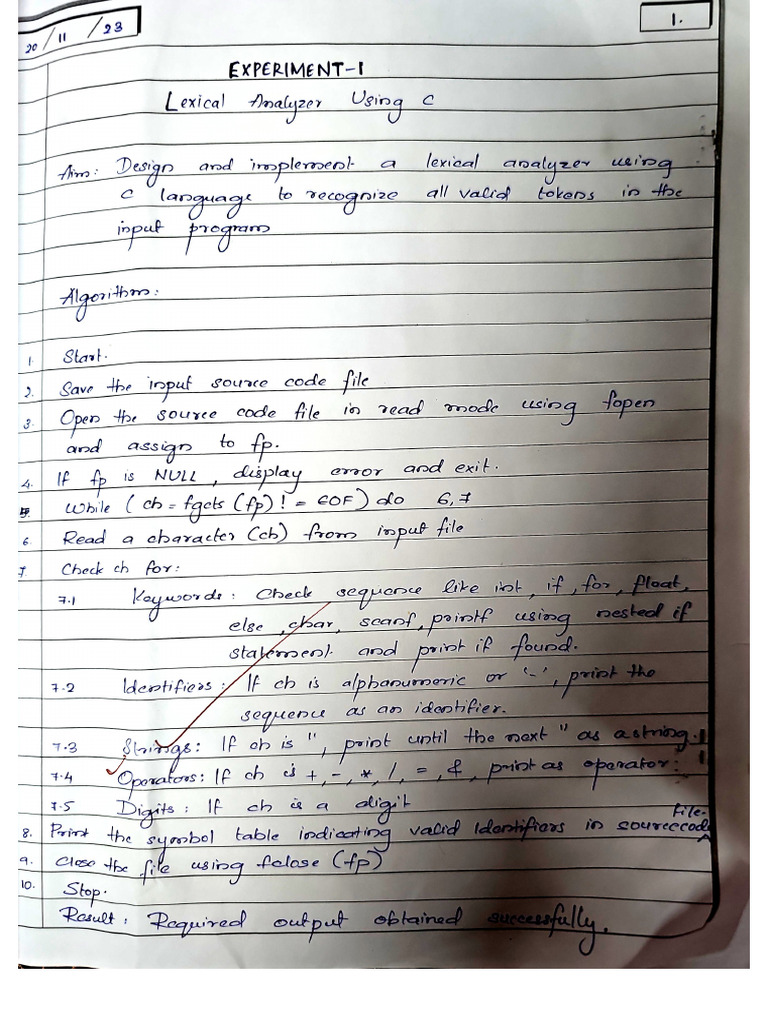 20/11/23
1.
EXPERIMENT-1
Lexical Analyzer Using C
Aim: Design and implement a lexical analyzer using
C language to recognize all valid tokens in the
input program
Algorithm:
1. Start.
2. Save the input source code file
3. Open the source code file in read mode using fopen
and assign to fp.
4. If fp is NULL, display error and exit.
5. While (ch = fgets (fp) != EOF) do 6,7
6. Read a character (ch) from input file
7. Check ch for:
7.1 Keywords: Check sequence like int, if, for, float,
else, char, scanf, printf using nested if
statement and print if found.
7.2 Identifiers: If ch is alphanumeric or '-', print the
sequence as an identifier.
7.3 Strings: If ch is ", print until the next " as a string.
7.4 Operators: If ch is +, -, *, /, =, &, print as operator.
7.5 Digits: If ch is a digit
8. Print the symbol table indicating valid Identifiers in sourcecode file.
9. Close the file using fclose (fp)
10. Stop.
Result: Required output obtained successfully.